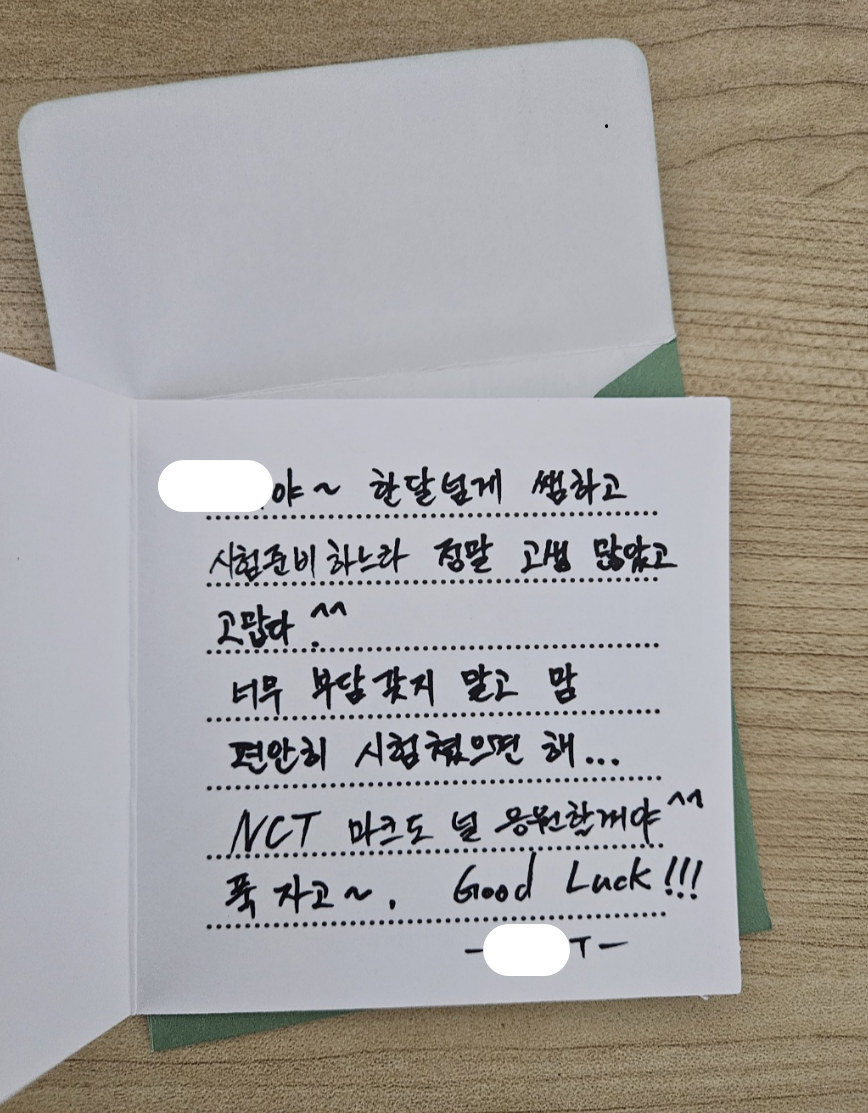 야~ 한달넘게 쌤하고
시험준비하느라 정말 고생 많았고
고맙다 ^^.
너무 부담갖지 말고 맘
편안히 시험쳤으면 해...
NCT 마크도 널 응원할게야^^
푹 자고~. Good Luck!!!
- T -